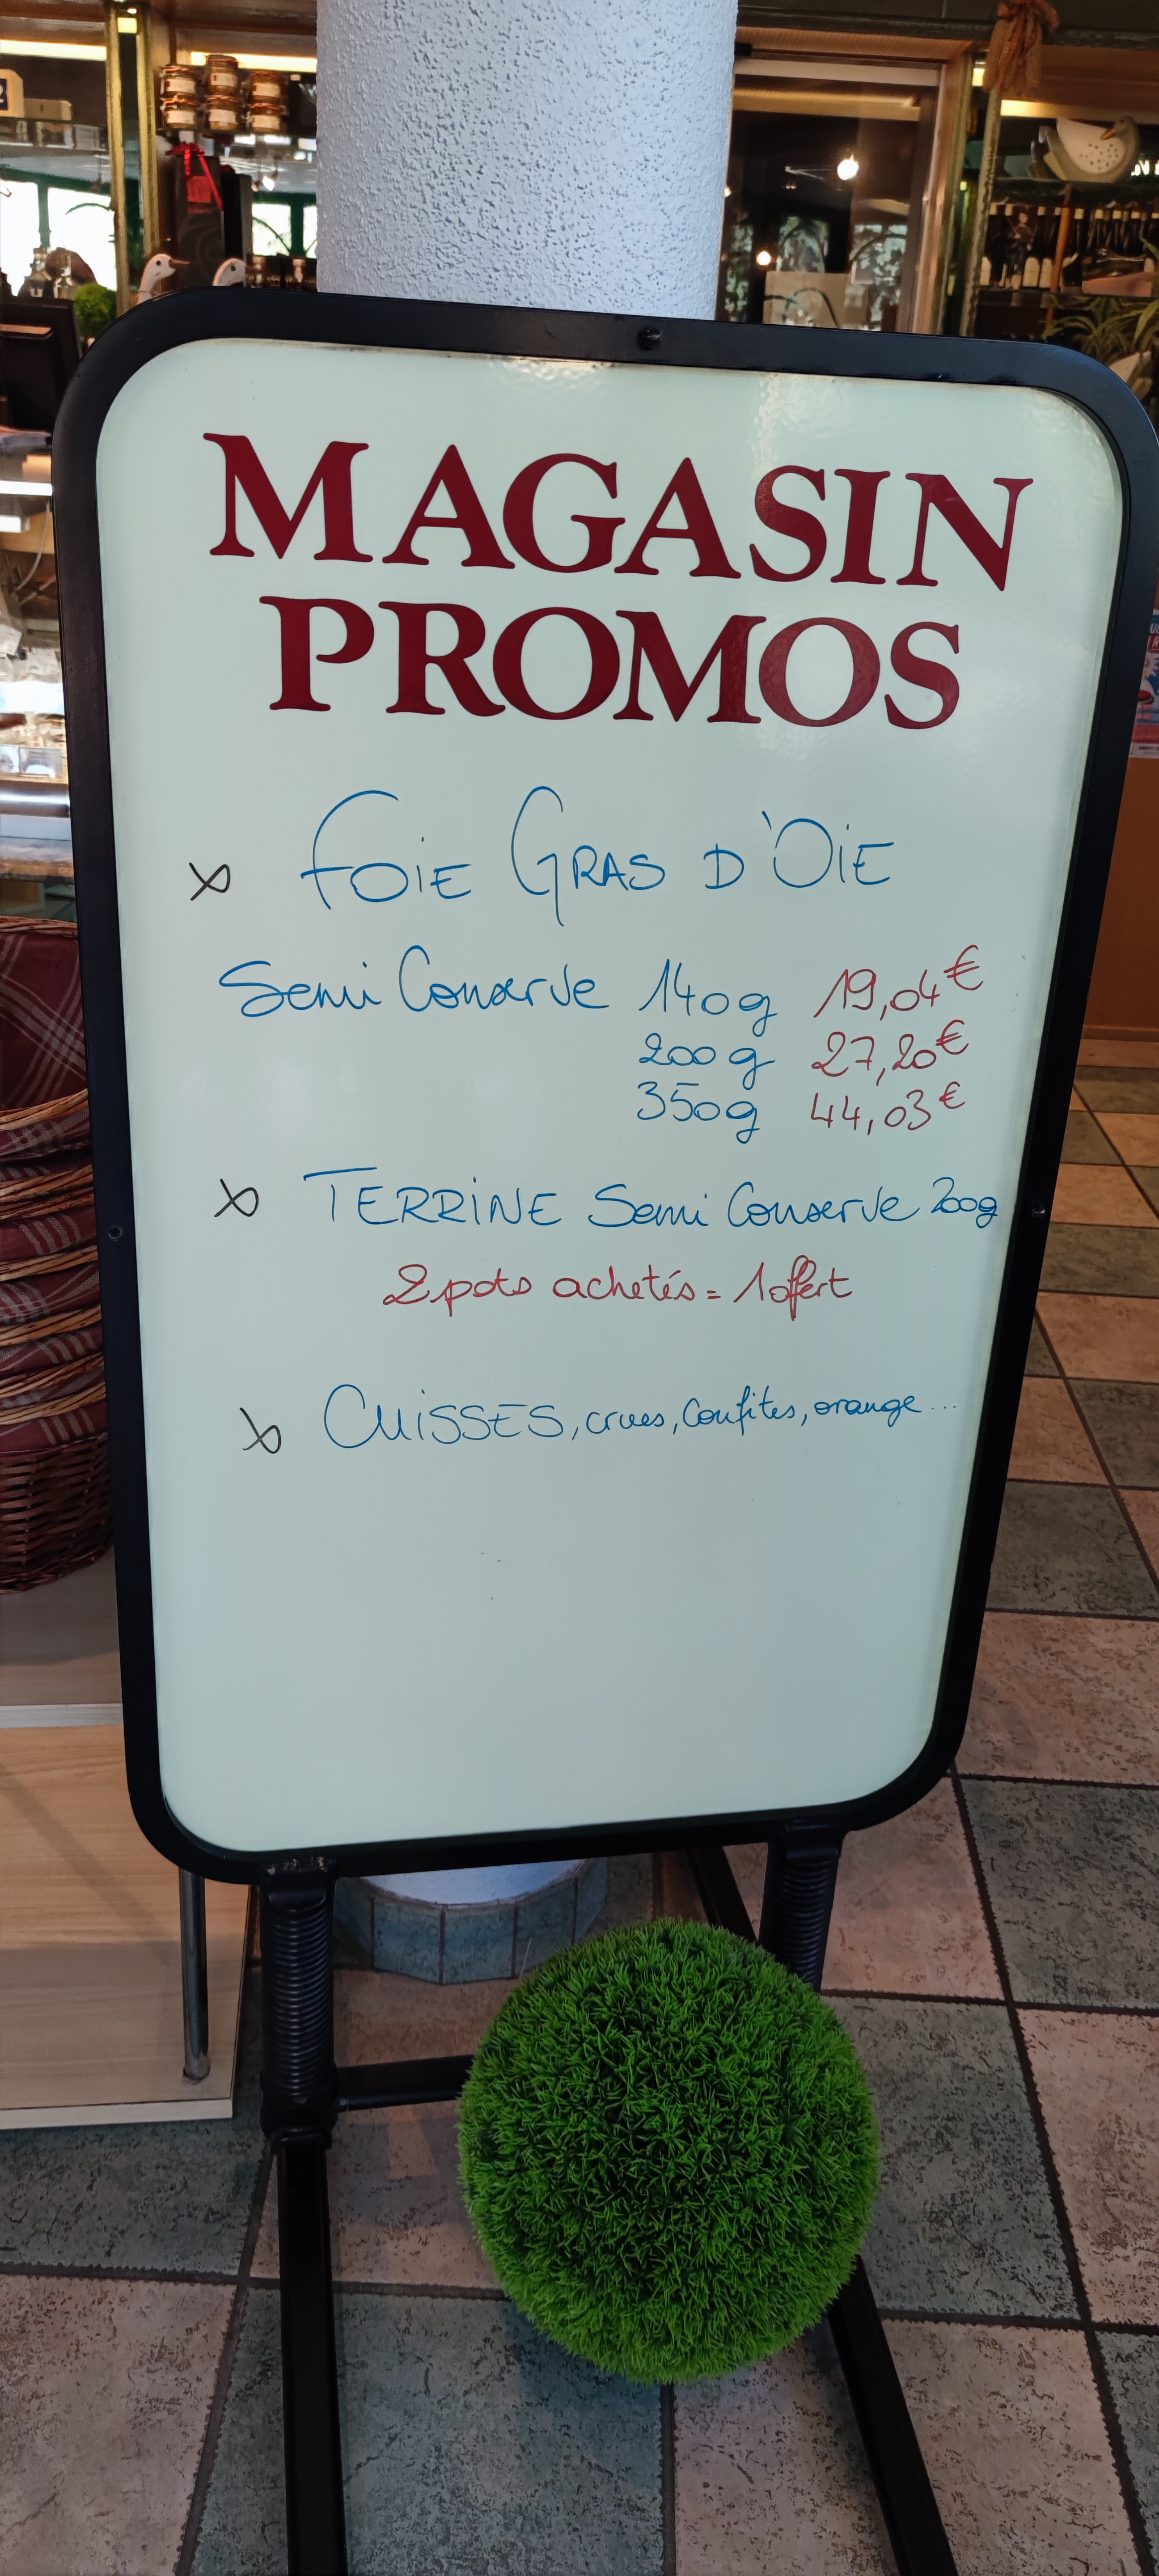 MAGASIN
PROMOS
x FOIE GRAS D'OIE
Semi Conserve 140g 19,04€
200g 27,20€
350g 44,03€
x TERRINE Semi Conserve 200g
2 pots achetés = 1 offert
x CUISSES, crues, Confites, orange...